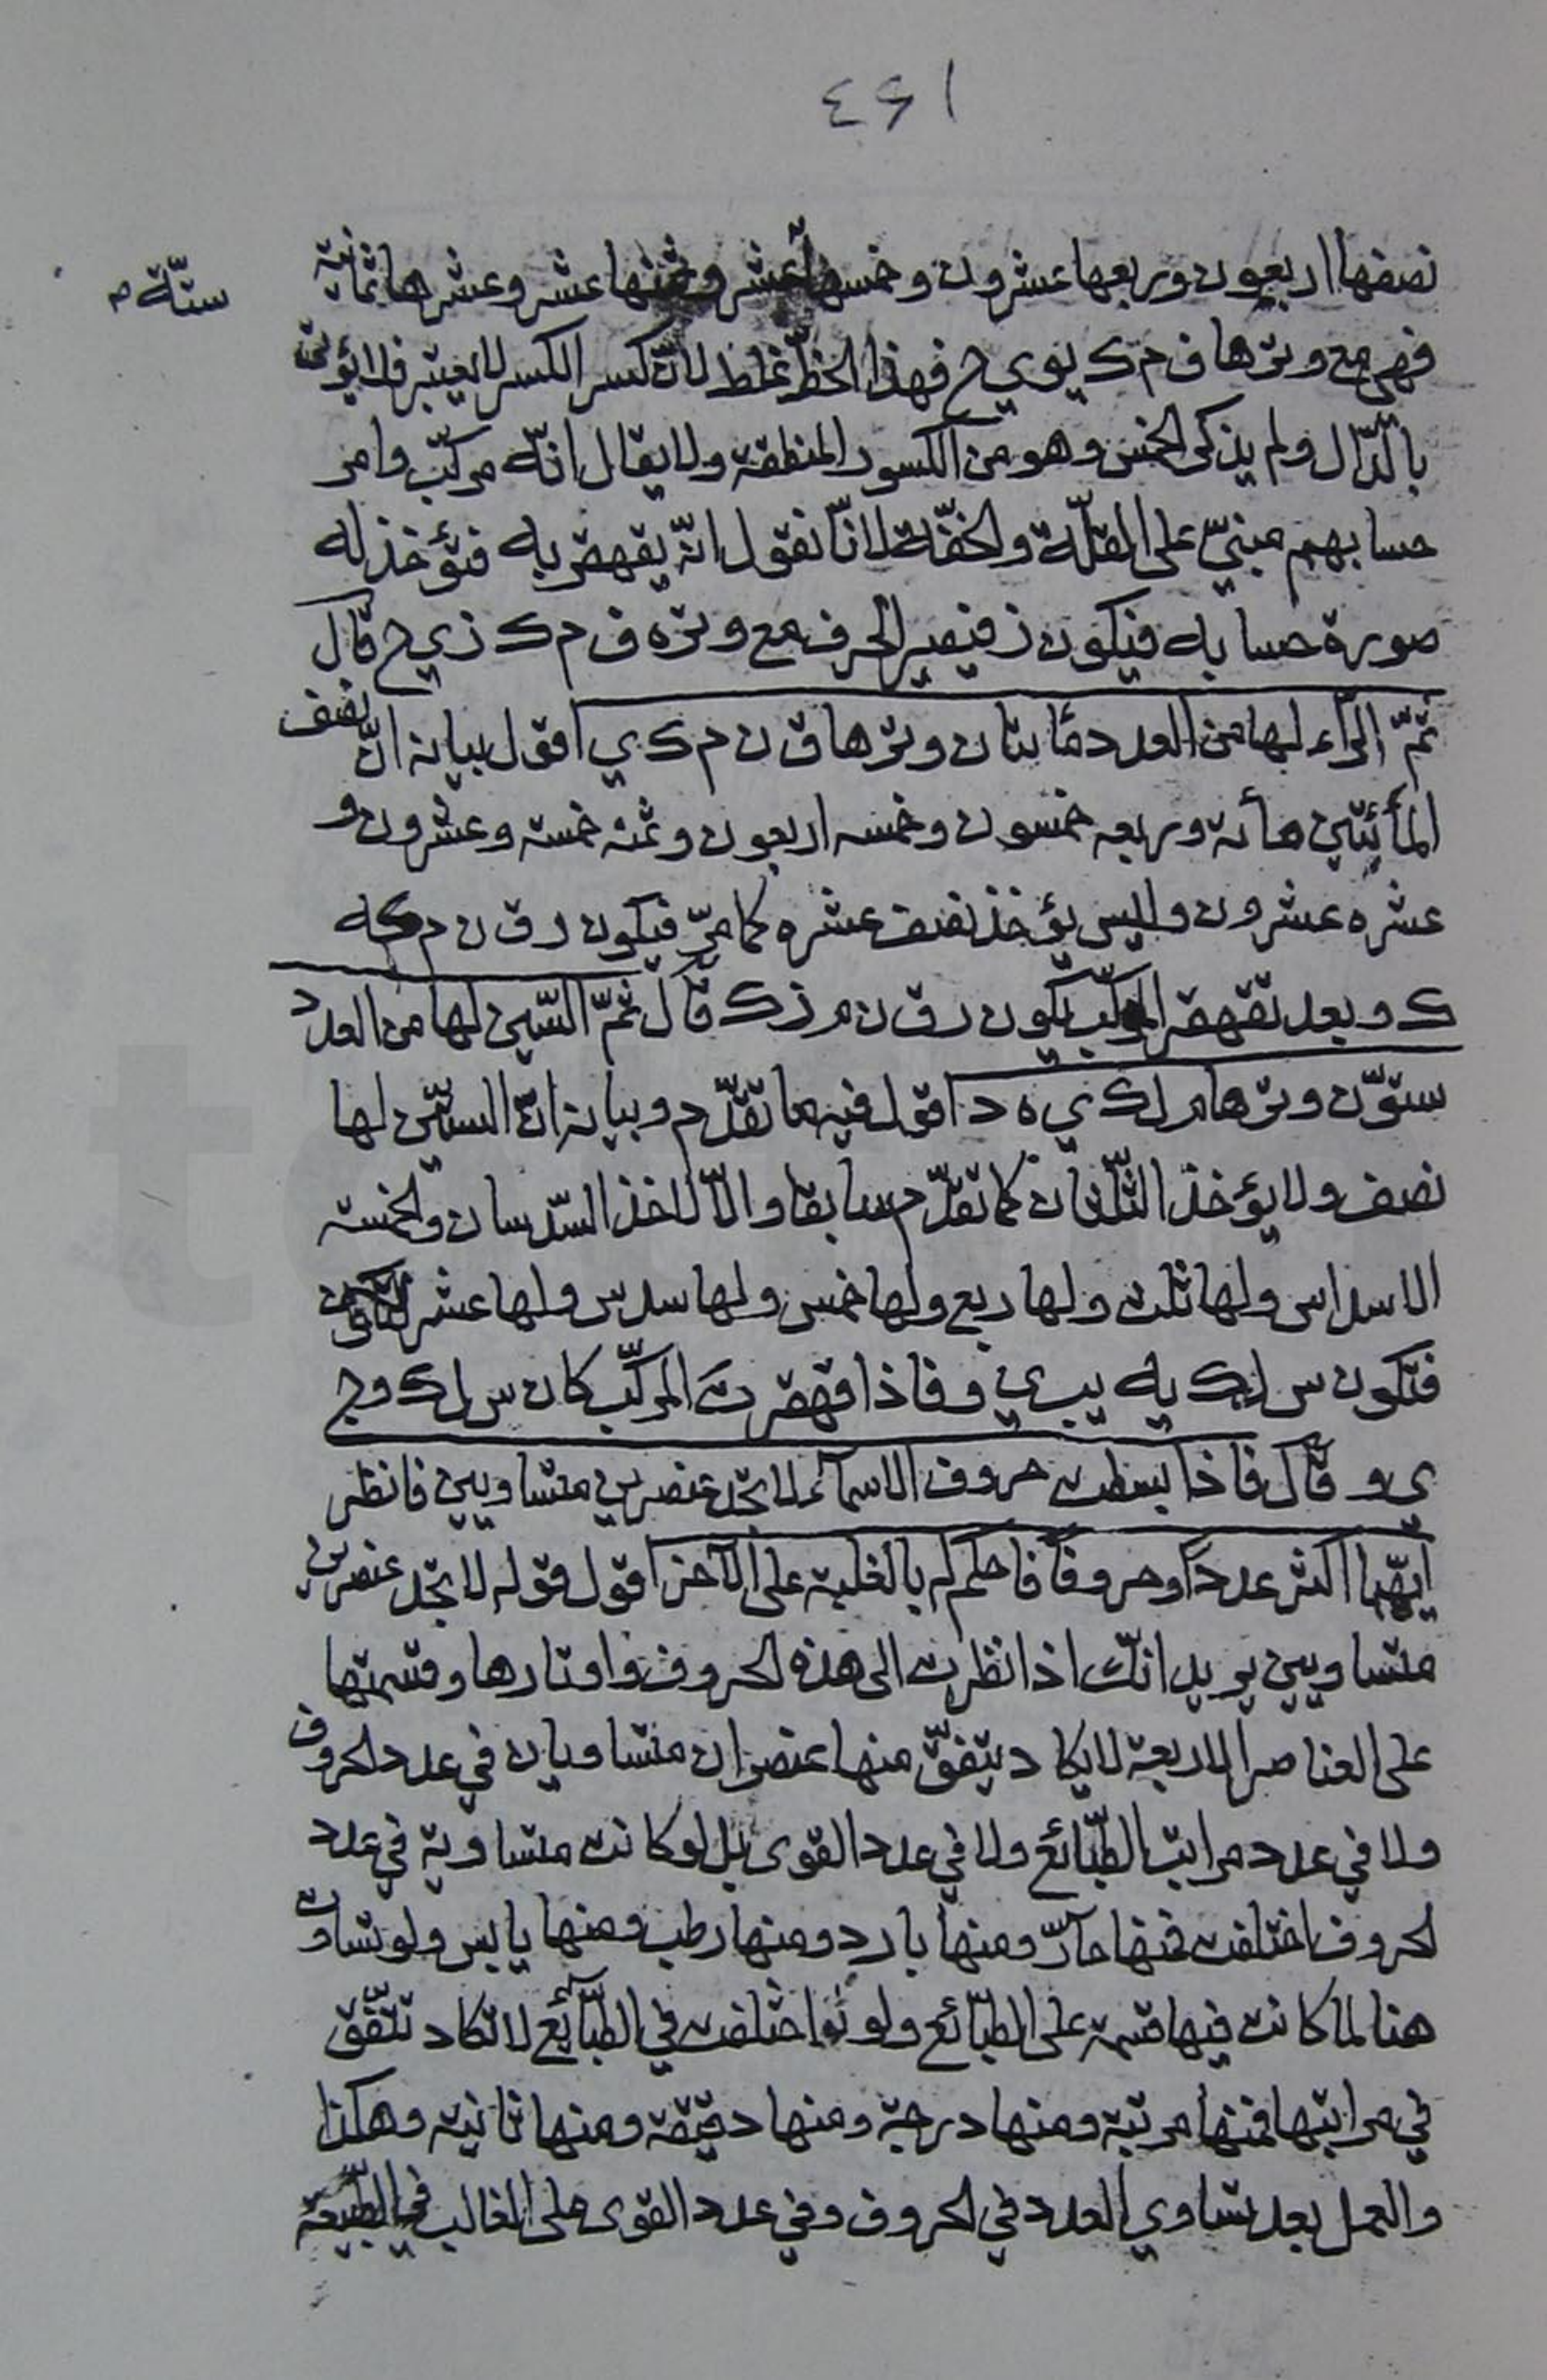 ٤٤١
نصفها اربعون وربعها عشرون وخمسها عشر وثمنها عشر وعشرها ثمانية
ستّة م
فهي مع وترها ف م ك يو ي ح فهذا الخطّ غلط لانّ كسر الكسر لا يعتبر فلا يؤتى
بالدّال ولم يذكر الخمس وهو من الكسور المنطقة ولا يقال انّه مركّب وامر
حسابهم مبنيّ على القلّة والخفّة لانّا نقول انّه يقهقر به فتؤخذ له
صورة حسابه فيكون ز فيصير الحرف مع وتره ف م ك ز ي ح قال
ثمّ الرّاء لها من العدد مائتان وترها ق ن م ك ي اقول بيانه انّ نصف
المأئتين مأئة وربعه خمسون وخمسه اربعون وثمنه خمسة وعشرون و
عشره عشرون وليس يؤخذ نصف عشره كما مرّ فيكون ر ق ن م كه
ك وبعد تقهقر المركّب يكون ر ق ن م ز ك قال ثمّ السّين لها من العدد
ستوّن وترها م ل ك ي ه د اقول فيه ما تقدّم وبيانه انّ السّتين لها
نصف ولا يؤخذ الثّلثان كما تقدّم سابقا والّا لاخذ السّدسان والخمسة
الاسداس ولها ثلث ولها ربع ولها خمس ولها سدس ولها عشر
فتكون س ل ك يه يب ي و فاذا قهقرت المركّب كان س ل ك و ج
ي و قال فاذا بسطت حروف الاسماء لا تجد عنصرين متساويين فانظر
ايّهما اكثر عدداً وحروفاً فاحكم له بالغلبة على الآخر اقول قوله لا تجد عنصرين
متساويين يريد انّك اذا نظرت الى هذه الحروف واوتارها وقسمتها
على العناصر الاربعة لا يكاد يتفّق منها عنصران متساويان في عدد الحروف
ولا في عدد مراتب الطّبائع ولا في عدد القوى بل لو كانت متساوية في عدد
الحروف اختلفت فمنها حارّ ومنها بارد ومنها رطب ومنها يابس ولو تساوت
هنا لما كانت فيها قسمة على الطّبائع ولو اختلفت في الطّبآئع لا تكاد تتّفق
في مراتبها فمنها مرتبة ومنها درجة ومنها دقيقة ومنها ثانية وهكذا
والعمل بعد تساوي العدد في الحروف وفي عدد القوى على الغالب في الطّبيعة